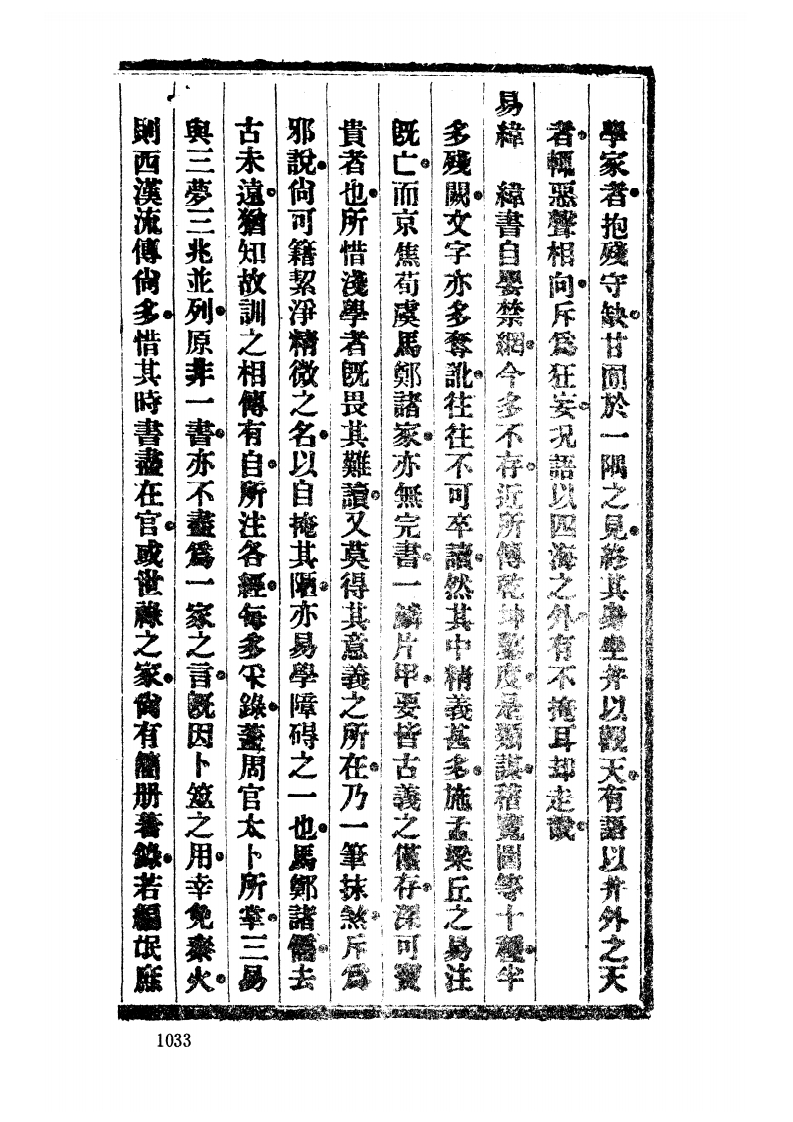 學家者抱殘守缺甘囿於一隅之見終其身坐井以觀天有語以井外之天
者輒惡聲相向斥爲狂妄况語以四海之外有不掩耳却走哉
易緯　緯書自嬰禁網今多不存近所傳乾坤鑿度是類謀稽覽圖等十種半
多殘闕文字亦多奪訛往往不可卒讀然其中精義甚多施孟梁丘之易注
既亡而京焦荀虞馬鄭諸家亦無完書一鱗片甲要皆古義之僅存深可寶
貴者也所惜淺學者既畏其難讀又莫得其意義之所在乃一筆抹煞斥爲
邪說尙可籍絜淨精微之名以自掩其陋亦易學障碍之一也馬鄭諸儒去
古未遠猶知故訓之相傳有自所注各經每多采錄蓋周官太卜所掌三易
與三夢三兆並列原非一書亦不盡爲一家之言旣因卜筮之用幸免秦火
則西漢流傳尙多惜其時書盡在官或世祿之家尙有簡册著錄若編氓庶
1033